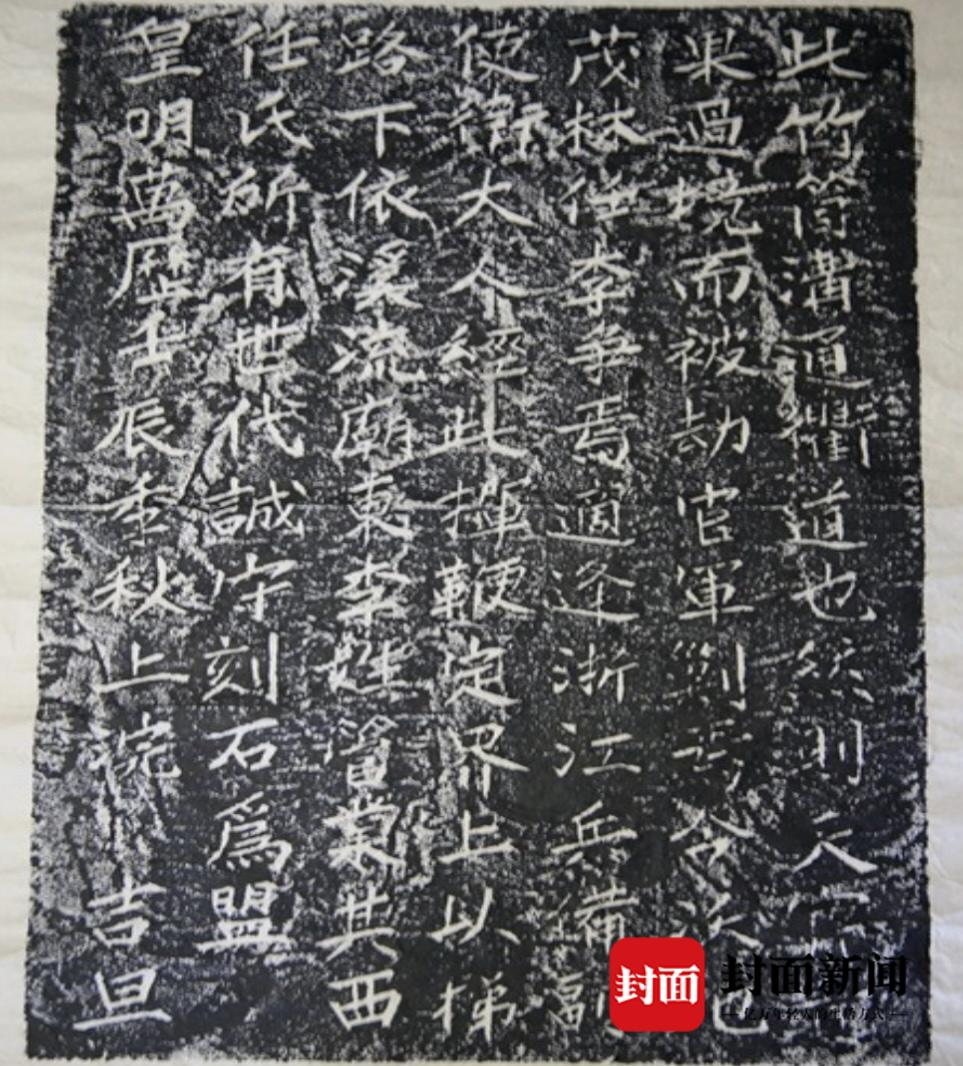 此竹筒溝通衢道也然則
果過境而被劫官軍剿
茂林任李爭焉適逢浙江兵備副
使衛大人經此揮鞭定界上以梯
路下依溪流廟東李姓業其西
任氏所有世代誠守刻石爲盟
皇明萬曆壬辰季秋上浣吉旦
封面
封面新闻
亿万年轻人的生活方式